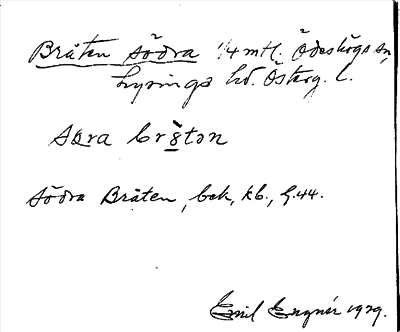 Bråten södra 1/4 mtl. Ödeshögs sn,
Lysings hd. Österg. l.
Søra brs̈̀tən
Södra Bråten, bek, kb., G.44.
Emil Engnér 1929.